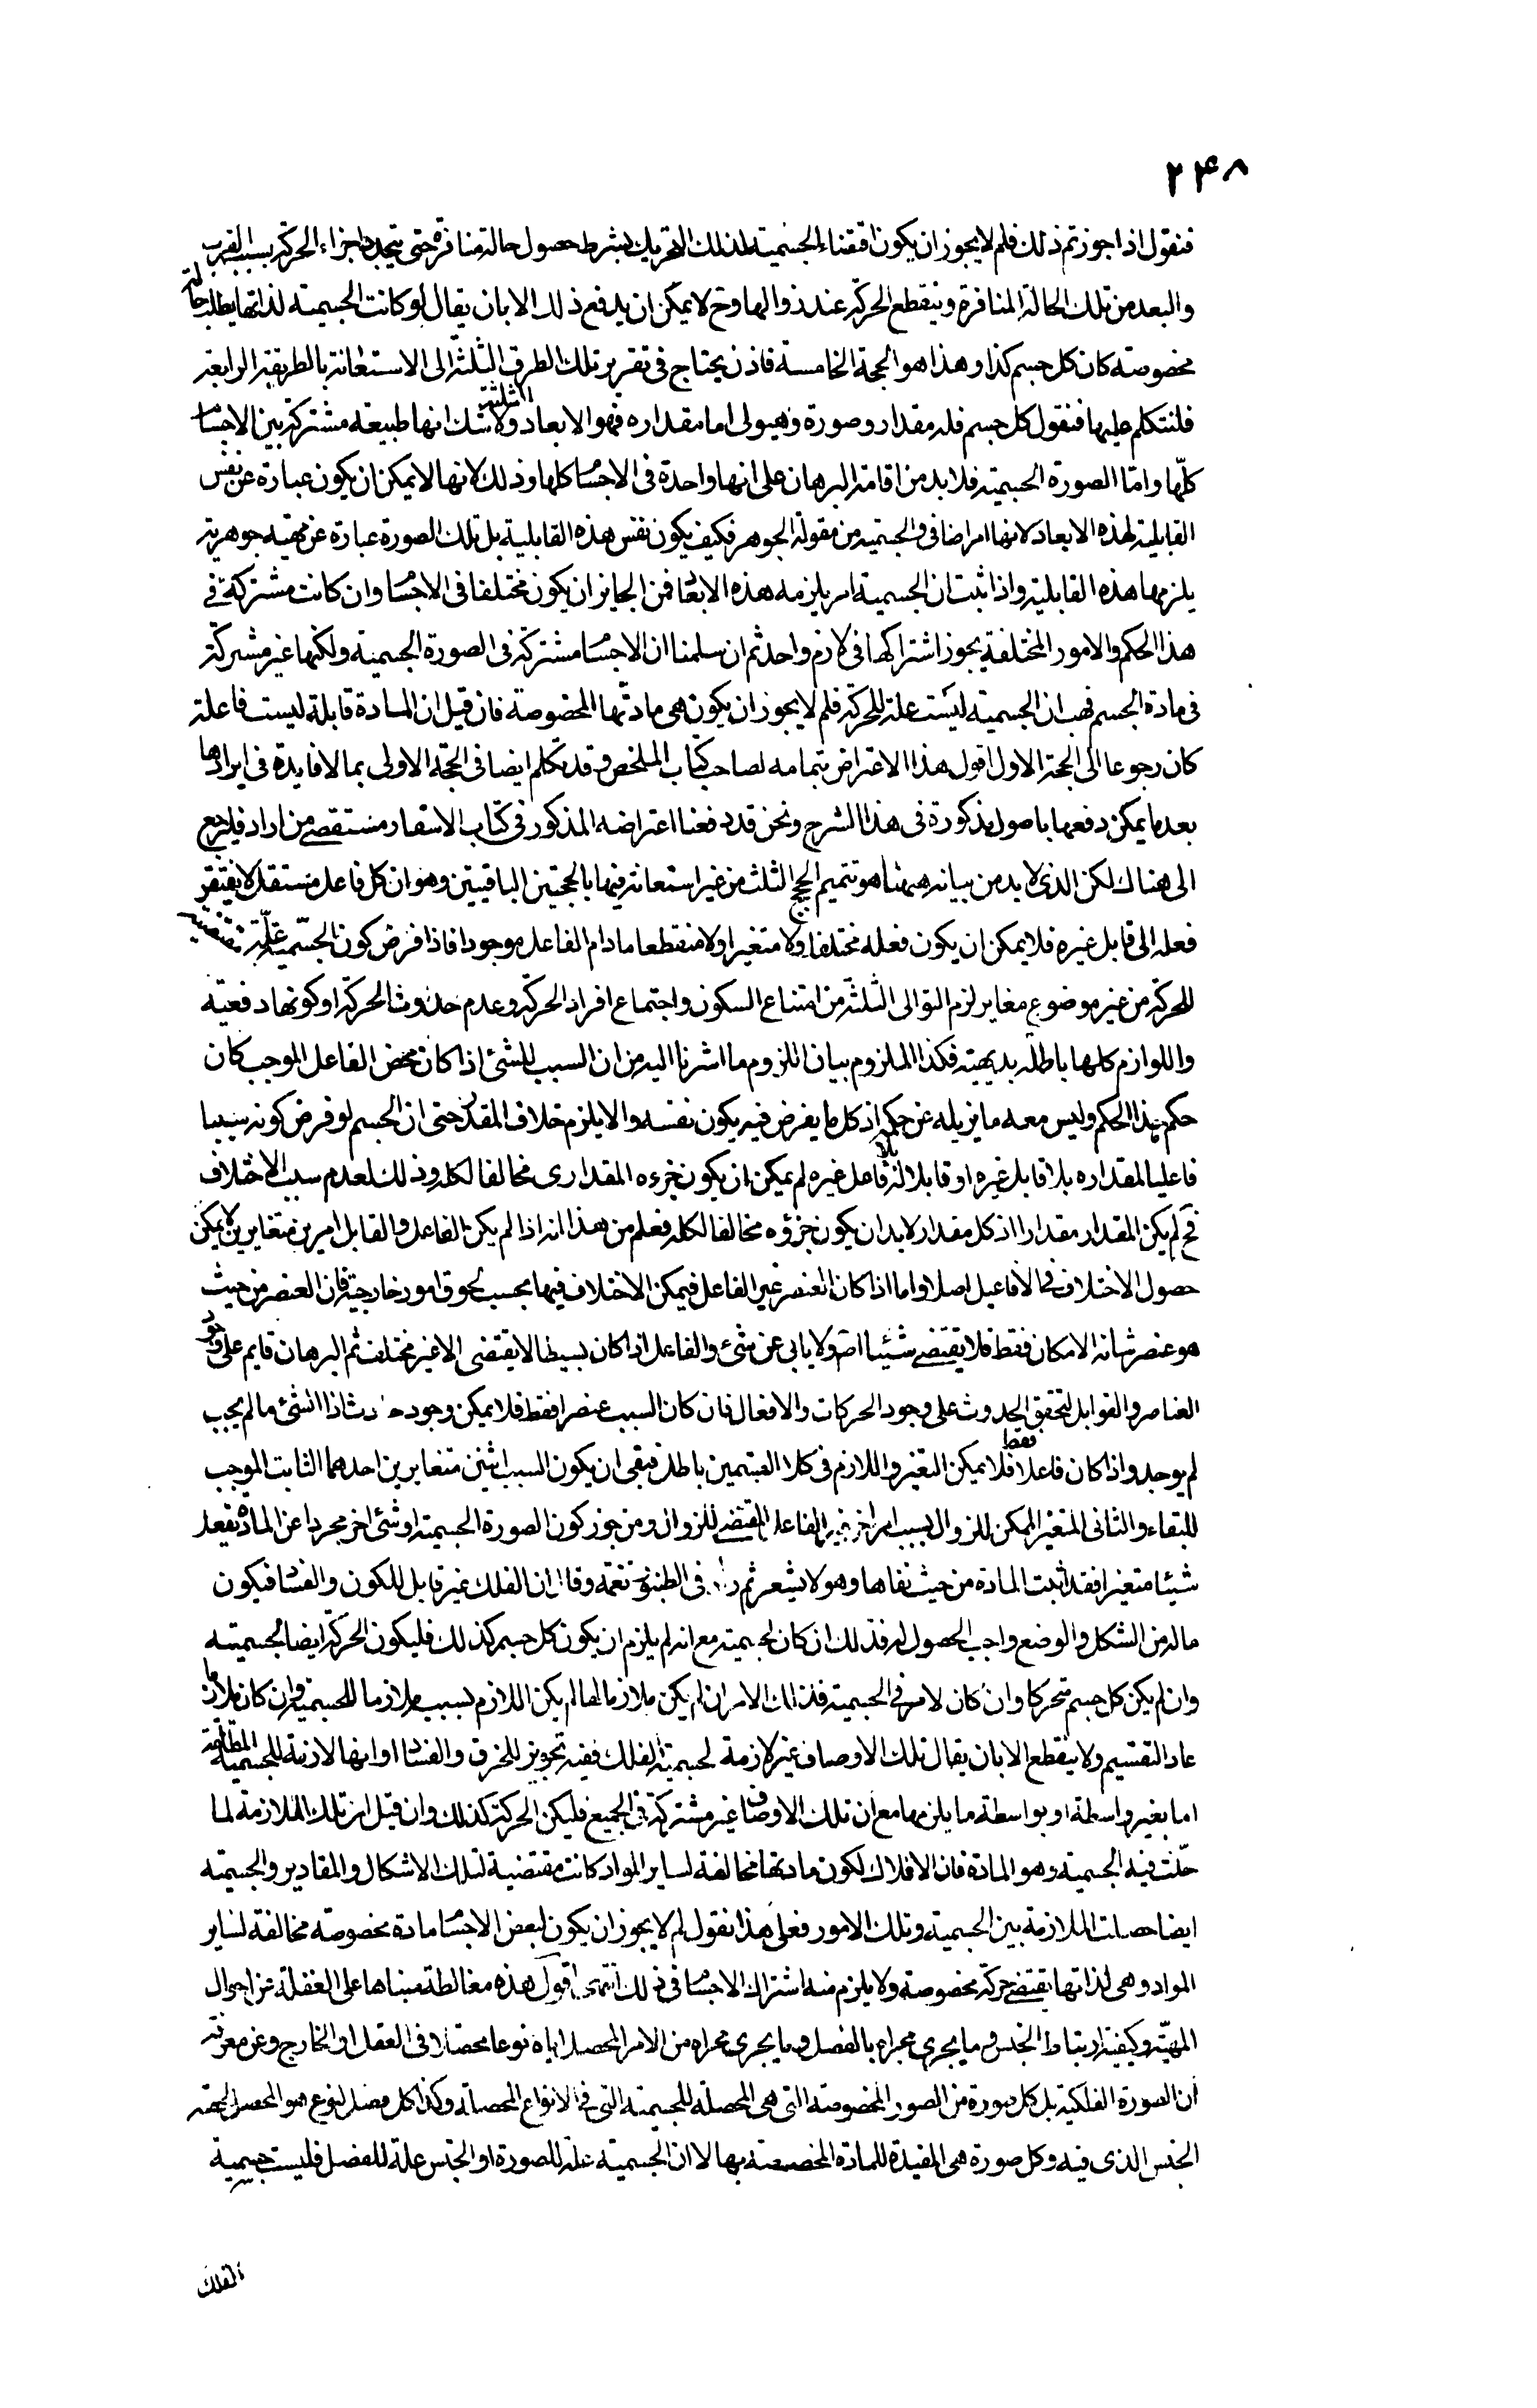 ٢٤٨
فنقول اذا جوزتم ذلك فلم لا يجوز ان يكون اقتضاء الجسمية لذلك التحريك بشرط حصول حالة منافرة حتى يتجدد اجزاء الحركة بسبب القرب
والبعد من تلك الحالة المنافرة وينقطع الحركة عند زوالها وح لا يمكن ان يدفع ذلك الا بان يقال لو كانت الجسمية لذاتها يطلب حالة
مخصوصة كان كل جسم كذا وهذا هو الحجة الخامسة فاذن يحتاج فى تقرير تلك الطرق الثلثة الى الاستعانة بالطريقة الرابعة
فلنتكلم عليها فنقول كل جسم فله مقدار وصورة وهيولى اما مقداره فهو الابعاد الثلثة ولا شك انها طبيعة مشتركة بين الاجسام
كلها واما الصورة الجسمية فلا بد من اقامة البرهان على انها واحدة فى الاجسام كلها وذلك لانها لا يمكن ان يكون عبارة عن نفس
القابلية لهذه الابعاد لانها امر اضافى والجسمية من مقولة الجوهر فكيف يكون نفس هذه القابلية بل تلك الصورة عبارة عن مهية جوهرية
يلزمها هذه القابلية واذا ثبت ان الجسمية امر يلزمه هذه الابعاد فمن الجايز ان يكون مختلفا فى الاجسام وان كانت مشتركة فى
هذا الحكم والامور المختلفة يجوز اشتراكها فى لازم واحد ثم ان سلمنا ان الاجسام مشتركة فى الصورة الجسمية ولكنها غير مشتركة
فى مادة الجسم فهب ان الجسمية ليست علة للحركة فلم لا يجوز ان يكون هى مادتها المخصوصة فان قيل ان المادة قابلة ليست فاعلة
كان رجوعا الى الحجة الاول اقول هذا الاعتراض بتمامه لصاحب كتاب الملخص وقد تكلم ايضا فى الحجة الاولى بما لا فايدة فى ايرادها
بعد ما يمكن دفعها باصول مذكورة فى هذا الشرح ونحن قد دفعنا اعتراضه المذكور فى كتاب الاسفار مستقصى من اراد فليرجع
الى هناك لكن الذى لا بد من بيانه ههنا هو تتميم الحجج الثلث من غير استعانة فيها بالحجتين الباقيتين وهو ان كل فاعل مستقل لا يفتقر
فعله الى قابل غيره فلا يمكن ان يكون فعله مختلفا ولا متغيرا ولا منقطعا ما دام الفاعل موجودا فاذا فرض كون الجسمية علة مقتضية
للحركة من غير موضوع مغاير لزم التوالى الثلثة من امتناع السكون واجتماع افراد الحركة وعدم حدوث الحركة او كونها دفعية
واللوازم كلها باطلة بديهية فكذا الملزوم بيان اللزوم ما اشرنا اليه من ان السبب للشئ اذا كان محض الفاعل الموجب كان
حكم بهذا الحكم وليس معه ما يزيله عن حكمه اذ كل ما يفرض فيه يكون نفسه والا يلزم خلاف المقدر حتى ان الجسم لو فرض كونه سببا
فاعليا لمقداره بلا قابل غيره او قابلا له بلا فاعل غيره لم يمكن ان يكون جزءه المقدارى مخالفا لكله وذلك لعدم سبب الاختلاف
فح لم يكن المقدار مقدارا اذ كل مقدار لا بد ان يكون جزؤه مخالفا لكله فعلم من هذا انه اذا لم يكن الفاعل والقابل امرين متغايرين لا يمكن
حصول الاختلاف فى الافاعيل اصلا واما اذا كان العنصر غير الفاعل فيمكن الاختلاف فيها بحسب لحوق امور خارجية فان العنصر من حيث
هو عنصر شانه الامكان فقط فلا يقتضى شيئا اصم ولا يابى عن شئ والفاعل اذا كان بسيطا لا يقتضى الا غير مختلف ثم البرهان قايم على وجود
العناصر والقوابل لتحقق الحدوث على وجود الحركات والافعال فان كان السبب عنصرا فقط فلا يمكن وجود حادث اذ الشئ ما لم يجب
لم يوجد واذا كان فاعلا فقط فلا يمكن التغير واللازم فى كلا القسمين باطل فبقى ان يكون السبب اثنين متغايرين احدهما الثابت الموجب
للبقاء والثانى المتغير الممكن للزوال بسبب امر اخر غير الفاعل المقتضى للزوال ومن جوز كون الصورة الجسمية او شئ اخر مجردا عن المادة يفعل
شيئا متغيرا فقد اثبت المادة من حيث نفاها وهو لا يشعر ثم زاد فى الطنبور نغمة وقال ان الفلك غير قابل للكون والفساد فيكون
ما له من الشكل والوضع واجب الحصول له فذلك ان كان لجسميته مع انه لم يلزم ان يكون كل جسم كذلك فليكون الحركة ايضا لجسميته
وان لم يكن كل جسم متحركا وان كان لامر فى الجسمية فذلك الامر ان لم يكن ملازما لها لم يكن اللازم بسببه ملازما للجسمية وان كان ملازما
عاد التقسيم ولا ينقطع الا بان يقال تلك الاوصاف غير لازمة لجسمية الفلك ففيه تجويز للخرق والفساد او انها لازمة للجسمية المطلقة
اما بغير واسطة او بواسطة ما يلزمها مع ان تلك الاوصاف غير مشتركة فى الجميع فليكن الحركة كذلك وان قيل ان تلك الملازمة لما
حلت فيه الجسمية وهو المادة فان الافلاك لكون مادتها مخالفة لساير المواد كانت مقتضية لتلك الاشكال والمقادير والجسمية
ايضا حصلت الملازمة بين الجسمية وتلك الامور فعلى هذا نقول لم لا يجوز ان يكون لبعض الاجسام مادة مخصوصة مخالفة لساير
المواد وهى لذاتها يقتضى حركة مخصوصة ولا يلزم منه اشتراك الاجسام فى ذلك انتهى اقول هذه مغالطة مبناها على الغفلة عن احوال
المهية وكيفية ارتباط الجنس وما يجرى مجراه بالفصل وما يجرى مجراه من الامر المحصل اياه نوعا محصلا فى العقل او الخارج وعن معرفة
ان الصورة الفلكية بل كل صورة من الصور المخصوصة التى هى المحصلة للجسمية التى فى الانواع المحصلة وكذا كل فصل لنوع هو المحصل لجهة
الجنس الذى فيه وكل صورة هى المفيدة للمادة المخصصة بها لا ان الجسمية علة للصورة او الجنس علة للفصل فليست جسمية
الفلك